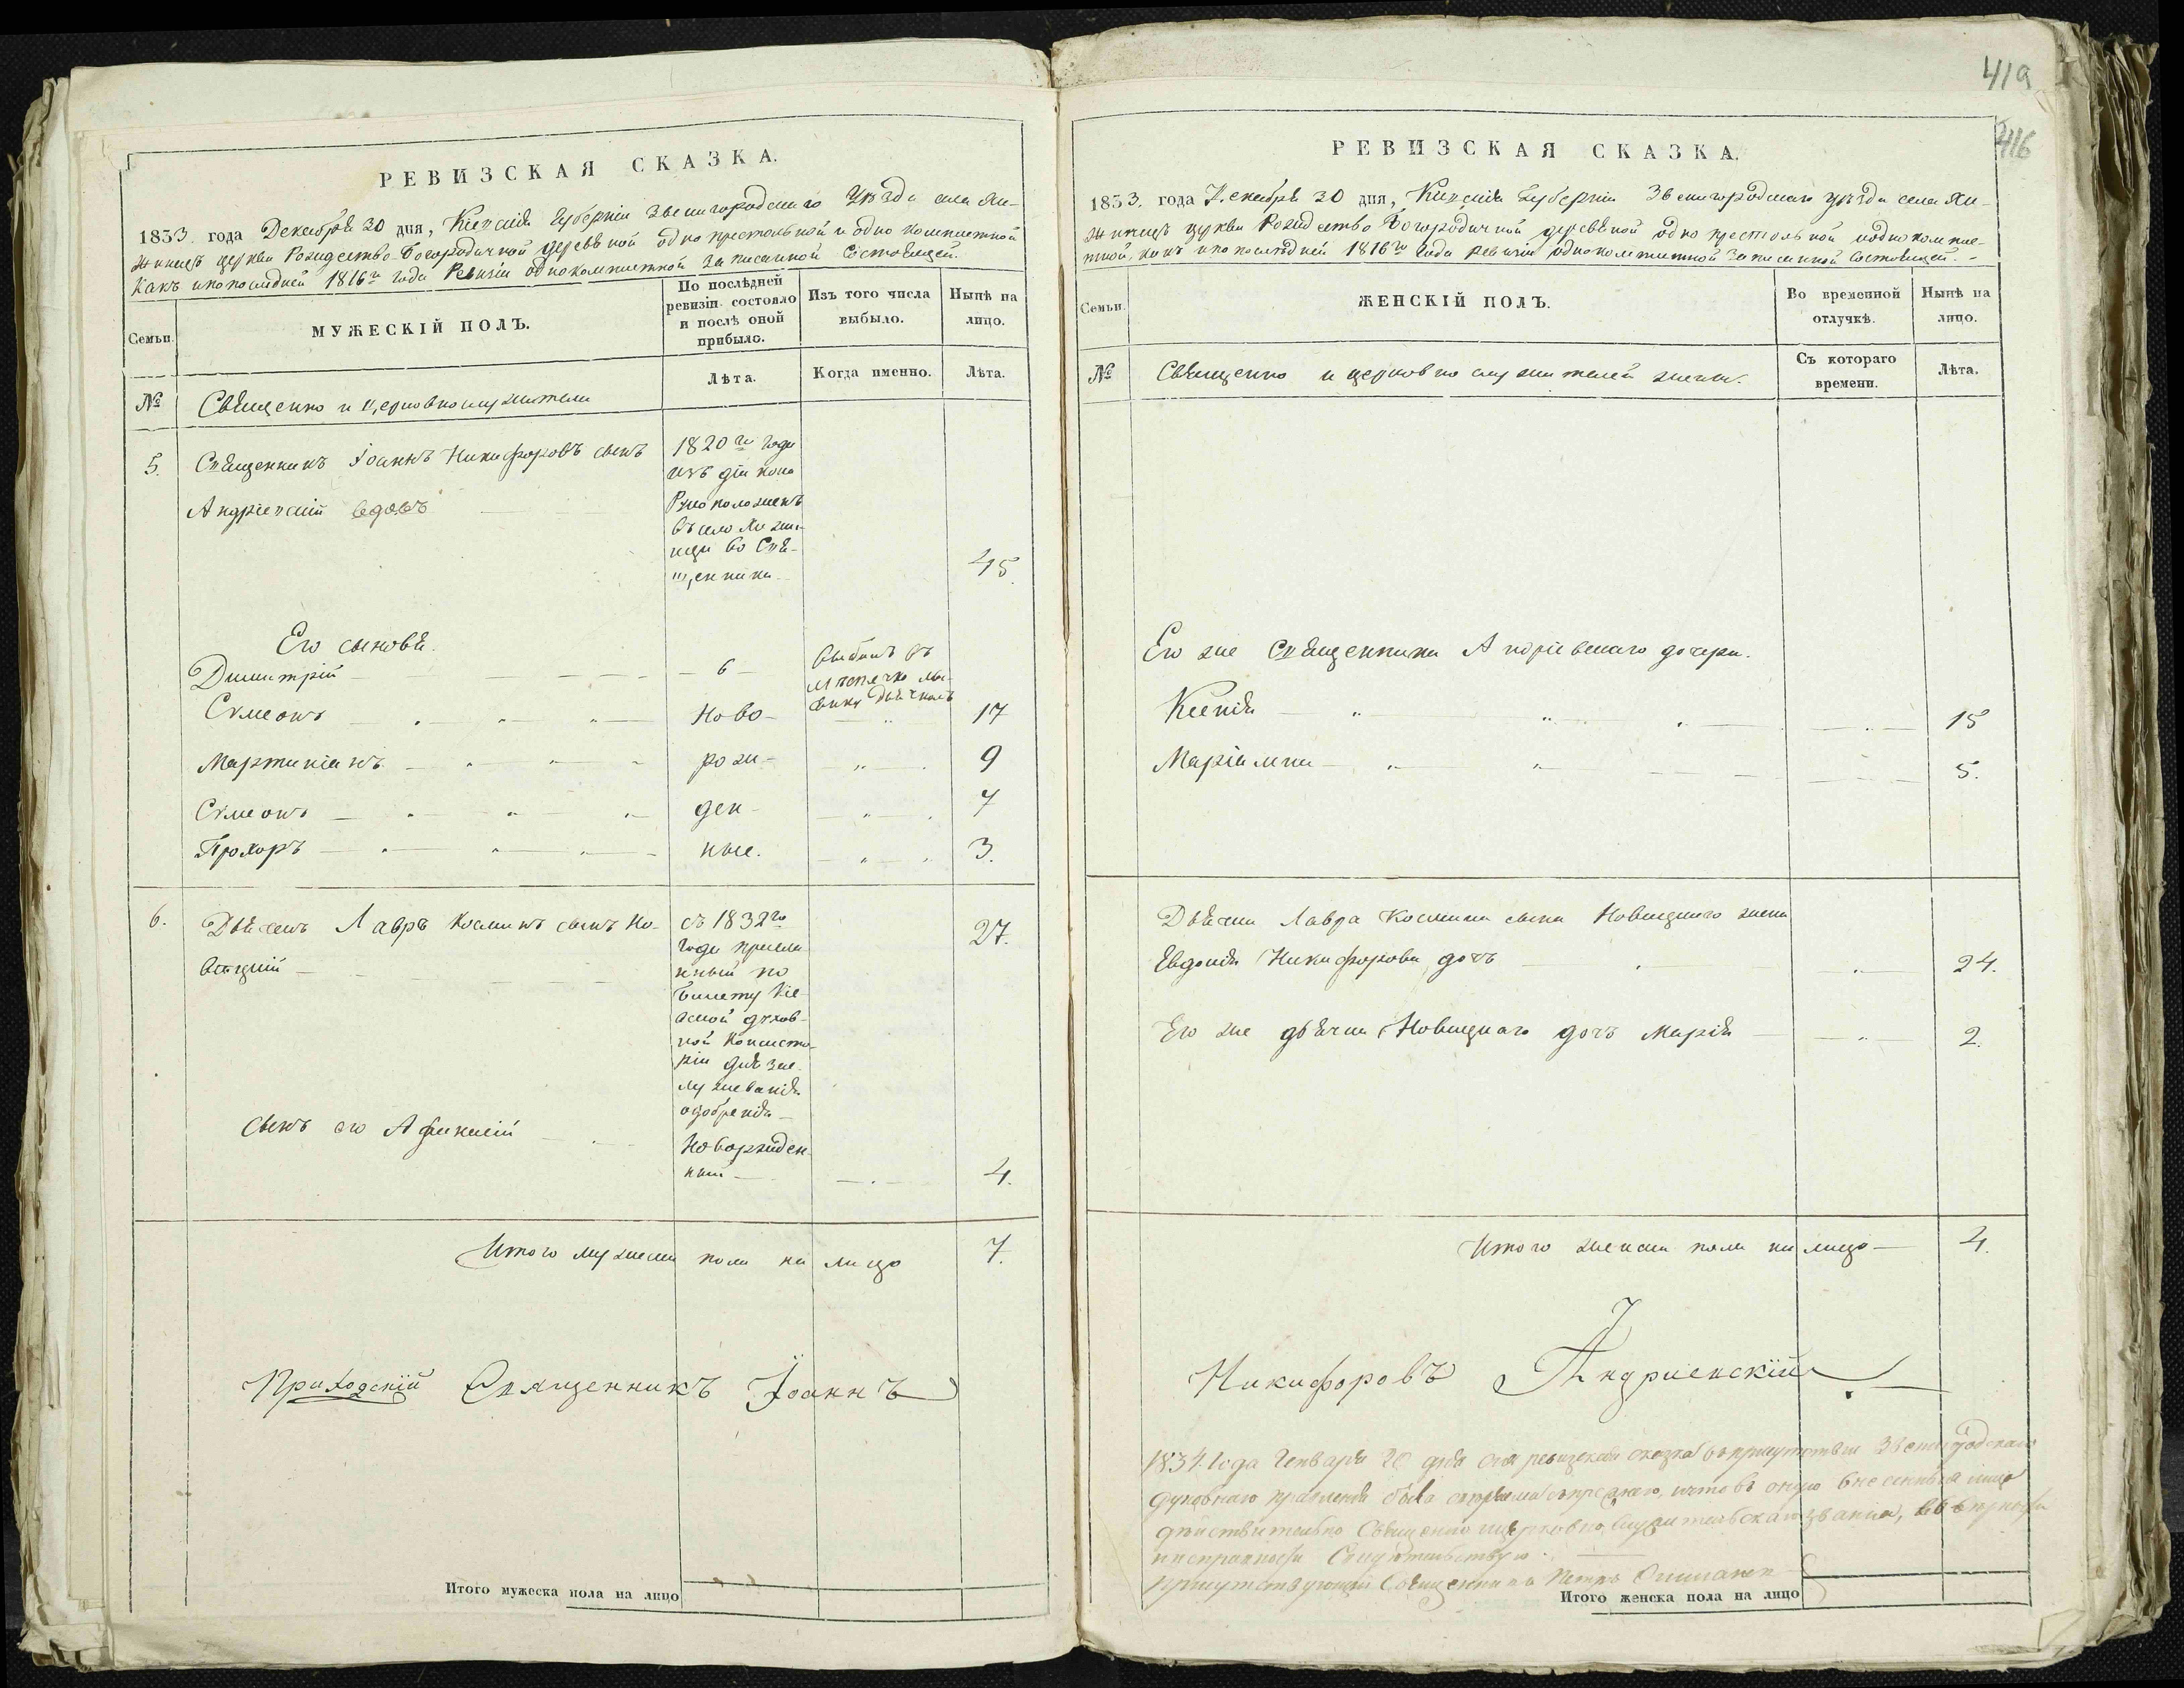 РЕВИЗСКАЯ СКАЗКА.
1833 года Декабря 20 дня, Кіевскія Губерніи Звенигородскаго Уѣзда села Яи-
жинецъ церкви Рождество-Богородичной деревяной однопрестольной и однокомплетной
Какъ и по послѣдней 1816го года Ревизіи однокомплетной записанной Состоящей.
Семьи.
МУЖЕСКІЙ ПОЛЪ.
По послѣдней
ревизіи состояло
и послѣ оной
прибыло.
Изъ того числа
выбыло.
Нынѣ на
лицо.
№
Священно и Церковнослужители
Лѣта.
Когда именно.
Лѣта.
5.
Священникъ Іоаннъ Никифоровъ сынъ
Андріевскій вдовъ
1820го года
изъ діакона
Рукоположенъ
въ село
во Свя-
щенника
45.
Его сыновья.
Димитрій
6
выбылъ въ
мѣстечко
дьячкомъ
Сѵмеонъ
Ново-
17
Мартиніанъ
рож-
9
Сѵмеонъ
ден-
7
Прохоръ
ные.
3.
6.
Дьячекъ Лавръ Косминъ сынъ Но-
вицкій
съ 1832го
года присла
нный по
билету Кіе
вской духов-
ной Консисто-
ріи для
служеванія
одобренія
27.
Сынъ его Афанасій
Новорожден-
ный
4.
Итого мужеска пола на лицо
7.
Приходскій Священникъ Іоаннъ
Итого мужеска пола на лицо
419
416
РЕВИЗСКАЯ СКАЗКА.
1833. года Декабря 20 дня, Кіевскія Губерніи Звенигородскаго уѣзда села Яи-
жинецъ церкви Рождество Богородичной деревяной однопрестольной и однокомпле-
тной, какъ и по послѣдней 1816го года ревизіи однокомплетной записанной Состоящей.
Семьи.
ЖЕНСКІЙ ПОЛЪ.
Во временной
отлучкѣ.
Нынѣ на
лицо.
№
Священно и церковнослужителей жены.
Съ котораго
времени.
Лѣта.
Его же Священника Андріевскаго дочери.
Ксенія
15
Маріамна
5.
Дьячка Лавра Космина сына Новицкаго жена
Евдокія Никифорова дочь
24.
Его же дьячка Новицкаго дочь Марія
2.
Итого женска пола на лицо
4.
Никифоровъ Андриевскій
1834 года Генваря 20 дня сія ревизская сказка въ присутствіи Звенигородскаго
духовнаго правленія была что въ оную внесенныя лица
дѣйствительно Священно и церковнослужительскаго званія, въ вѣрности
и исправности Свидѣтельствую.
Присутствующій Священникъ Петръ
Итого женска пола на лицо